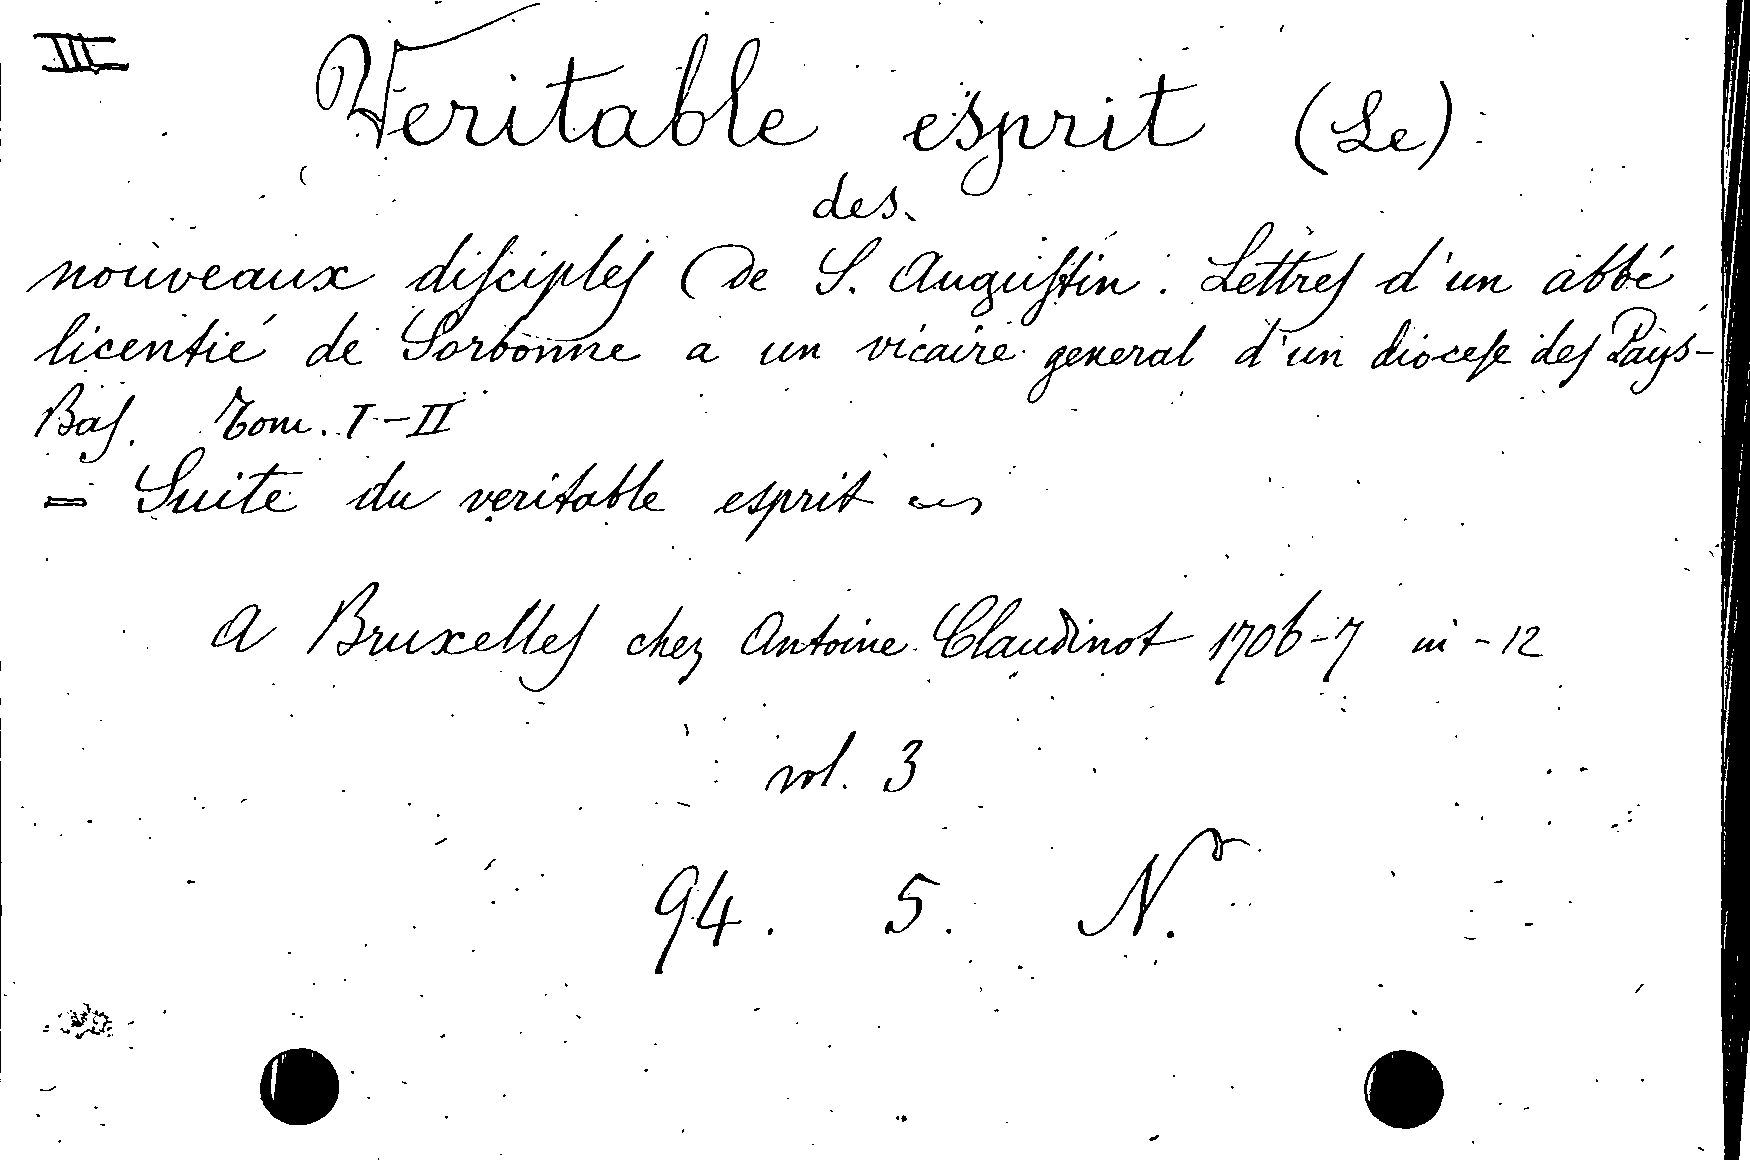 III
Veritable esprit (Le)
des
nouveaux disciples de S. Augustin. Lettres d'un abbé
licentié de Sorbonne a un vicaire general d'un diocese des Pays-
Bas. Tom. I-II
= Suite du veritable esprit
A Bruxelles chez Antoine Claudinot 1706-7 in-12
vol. 3
94. 5. N.